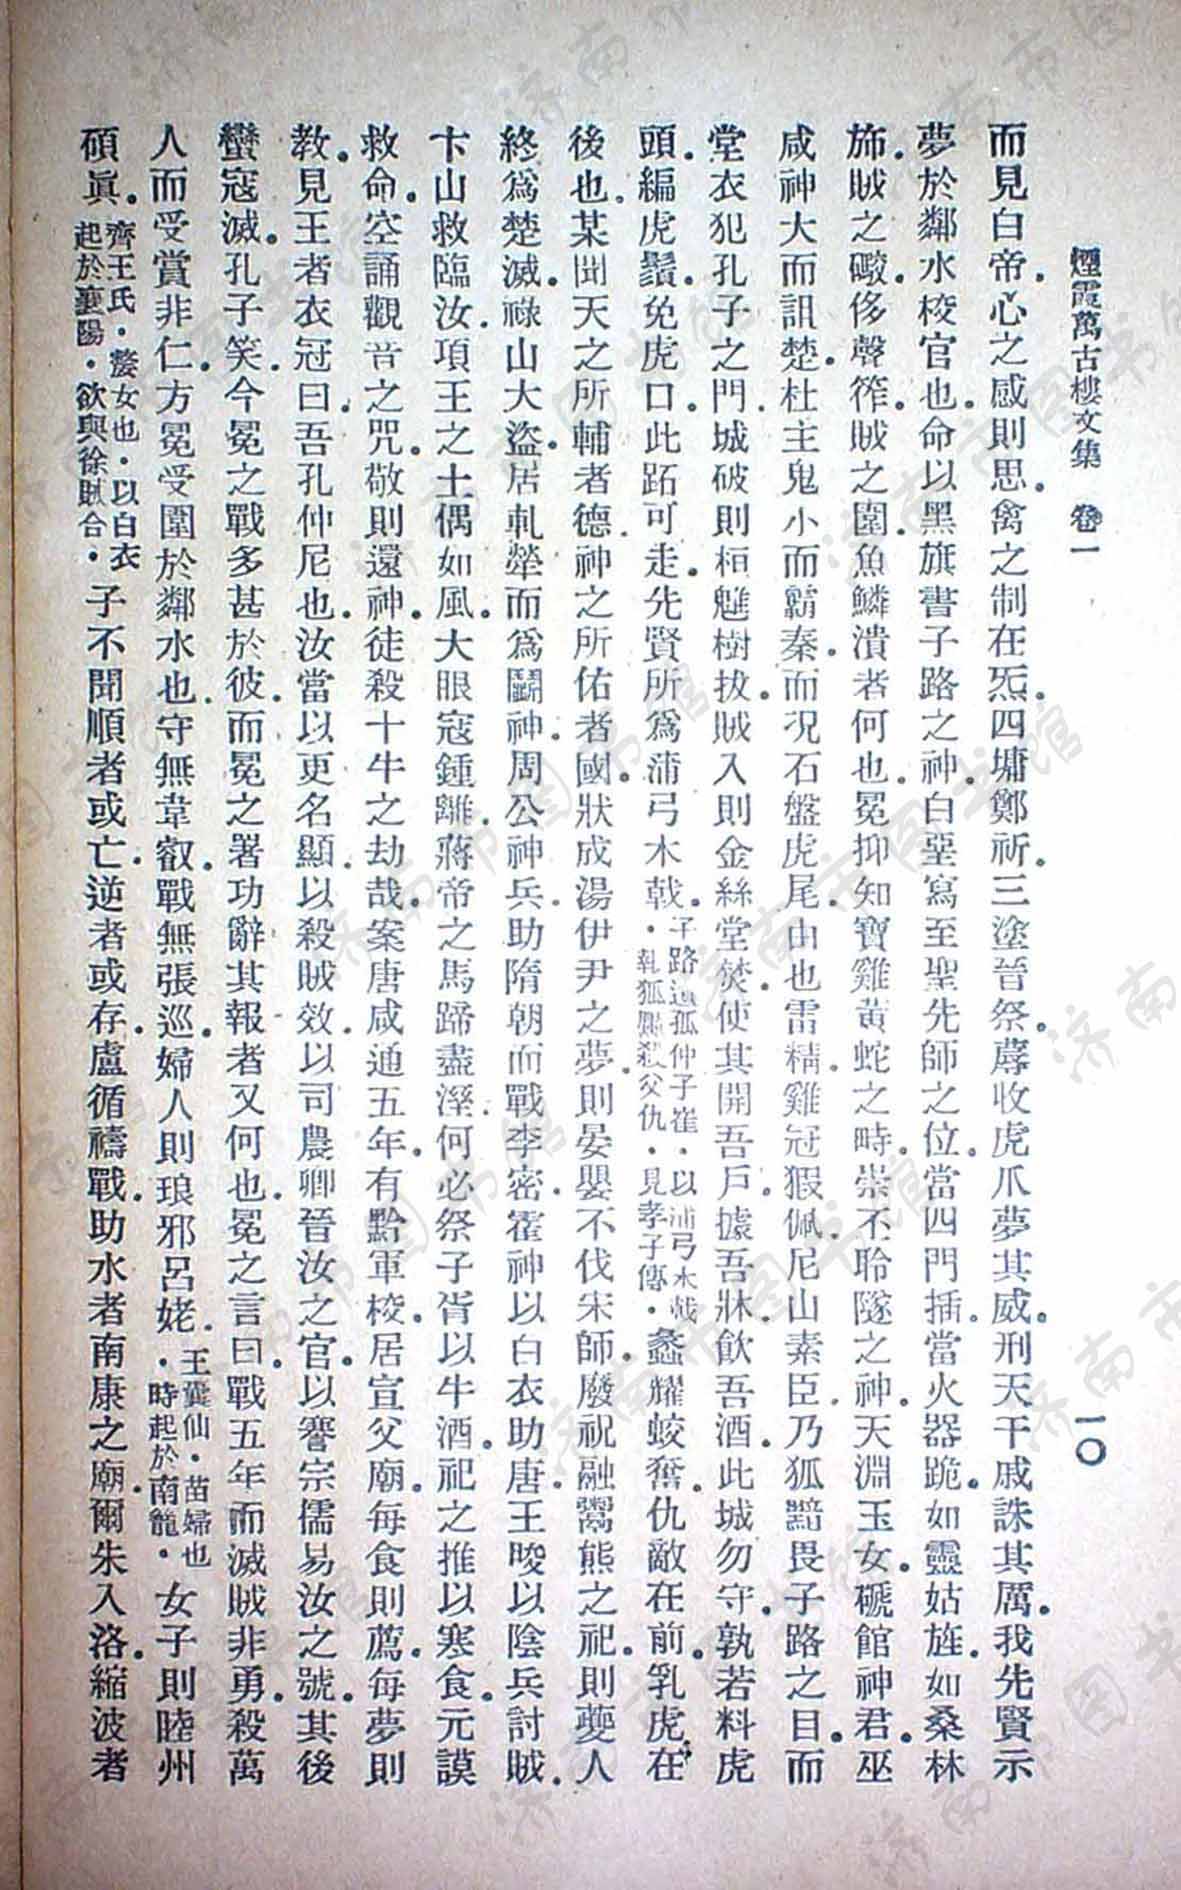 煙霞萬古樓文集　卷一　一〇
而見白帝。心之感則思。禽之制在炁。四墉鄭祈。三塗晉祭。蓐收虎爪夢其威。刑天干戚誅其厲。我先賢示
夢於鄰水校官也。命以黑旗書子路之神。白堊寫至聖先師之位。當四門插。當火器跪。如靈姑旌。如桑林
斾。賊之礮侈聲筰。賊之圍魚鱗潰者何也。冕抑知寶雞黃蛇之畤。崇不聆隧之神。天淵玉女。礮館神君。巫
咸神大而訊楚。杜主鬼小而霸秦。而況石盤虎尾。山也雷精。雞冠猳佩。尼山素臣。乃狐黯畏子路之目。而
堂衣犯孔子之門。城破則桓魋樹拔。賊入則金絲堂焚。使其開吾戶。據吾牀。飲吾酒。此城勿守。孰若料虎
頭。編虎鬚。免虎口。此跖可走。先賢所爲蒲弓木戟。子路遺孤仲子崔。以蒲弓木戟。執狐黶殺父仇。見孝子傳。蠡耀蛟奮。仇敵在前。乳虎在
後也。某聞天之所輔者德。神之所佑者國。狀成湯伊尹之夢。則晏嬰不伐宋師。廢祝融鬻熊之祀。則夔人
終爲楚滅。祿山大盜。居軋犖而爲鬭神。周公神兵。助隋朝而戰李密。霍神以白衣助唐。王晙以陰兵討賊。
卞山救臨汝。項王之土偶如風。大眼寇鍾離。蔣帝之馬蹄盡溼。何必祭子胥以牛酒。祀之推以寒食。元謨
救命。空誦觀音之咒。敬則還神。徒殺十牛之劫哉。案唐咸通五年。有黔軍校。居宣父廟。每食則薦。每夢則
教。見王者衣冠曰。吾孔仲尼也。汝當以更名顯。以殺賊效。以司農卿晉汝之官。以謇宗儒易汝之號。其後
蠻寇滅。孔子笑。今冕之戰多甚於彼。而冕之署功辭其報者又何也。冕之言曰。戰五年而滅賊非勇。殺萬
人而受賞非仁。方冕受圍於鄰水也。守無韋叡。戰無張巡。婦人則琅邪呂姥。王囊仙。苗婦也。時起於南籠。女子則睦州
碩眞。齊王氏。嫠女也。以白衣起於襄陽。欲與徐賊合。子不聞順者或亡。逆者或存。盧循禱戰。助水者南康之廟。爾朱入洛。縮波者